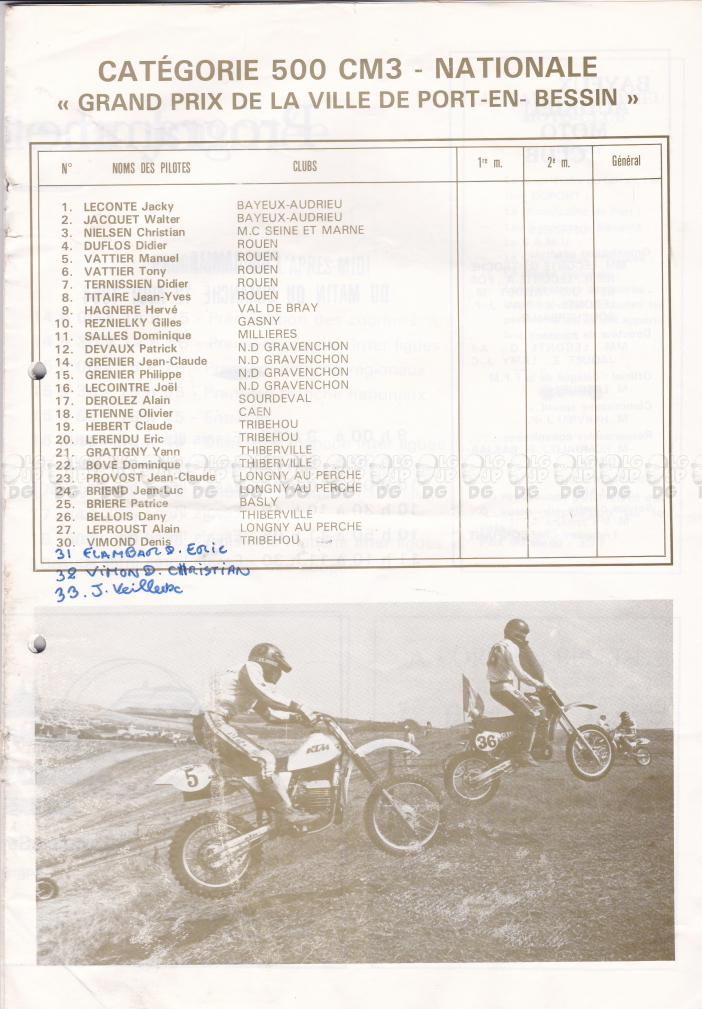 CATÉGORIE 500 CM3 - NATIONALE
« GRAND PRIX DE LA VILLE DE PORT-EN- BESSIN »
N° NOMS DES PILOTES CLUBS 1re m. 2e m. Général
1. LECONTE Jacky BAYEUX-AUDRIEU
2. JACQUET Walter BAYEUX-AUDRIEU
3. NIELSEN Christian M.C SEINE ET MARNE
4. DUFLOS Didier ROUEN
5. VATTIER Manuel ROUEN
6. VATTIER Tony ROUEN
7. TERNISSIEN Didier ROUEN
8. TITAIRE Jean-Yves ROUEN
9. HAGNERE Hervé VAL DE BRAY
10. REZNIELKY Gilles GASNY
11. SALLES Dominique MILLIERES
12. DEVAUX Patrick N.D GRAVENCHON
14. GRENIER Jean-Claude N.D GRAVENCHON
15. GRENIER Philippe N.D GRAVENCHON
16. LECOINTRE Joël N.D GRAVENCHON
17. DEROLEZ Alain SOURDEVAL
18. ETIENNE Olivier CAEN
19. HEBERT Claude TRIBEHOU
20. LERENDU Eric TRIBEHOU
21. GRATIGNY Yann THIBERVILLE
22. BOVE Dominique THIBERVILLE
23. PROVOST Jean-Claude LONGNY AU PERCHE
24. BRIEND Jean-Luc LONGNY AU PERCHE
25. BRIERE Patrice BASLY
26. BELLOIS Dany THIBERVILLE
27. LEPROUST Alain LONGNY AU PERCHE
30. VIMOND Denis TRIBEHOU
31 FLAMBARD. ERIC
32 VIMOND. CHRISTIAN
33. J.
KTM
5
36